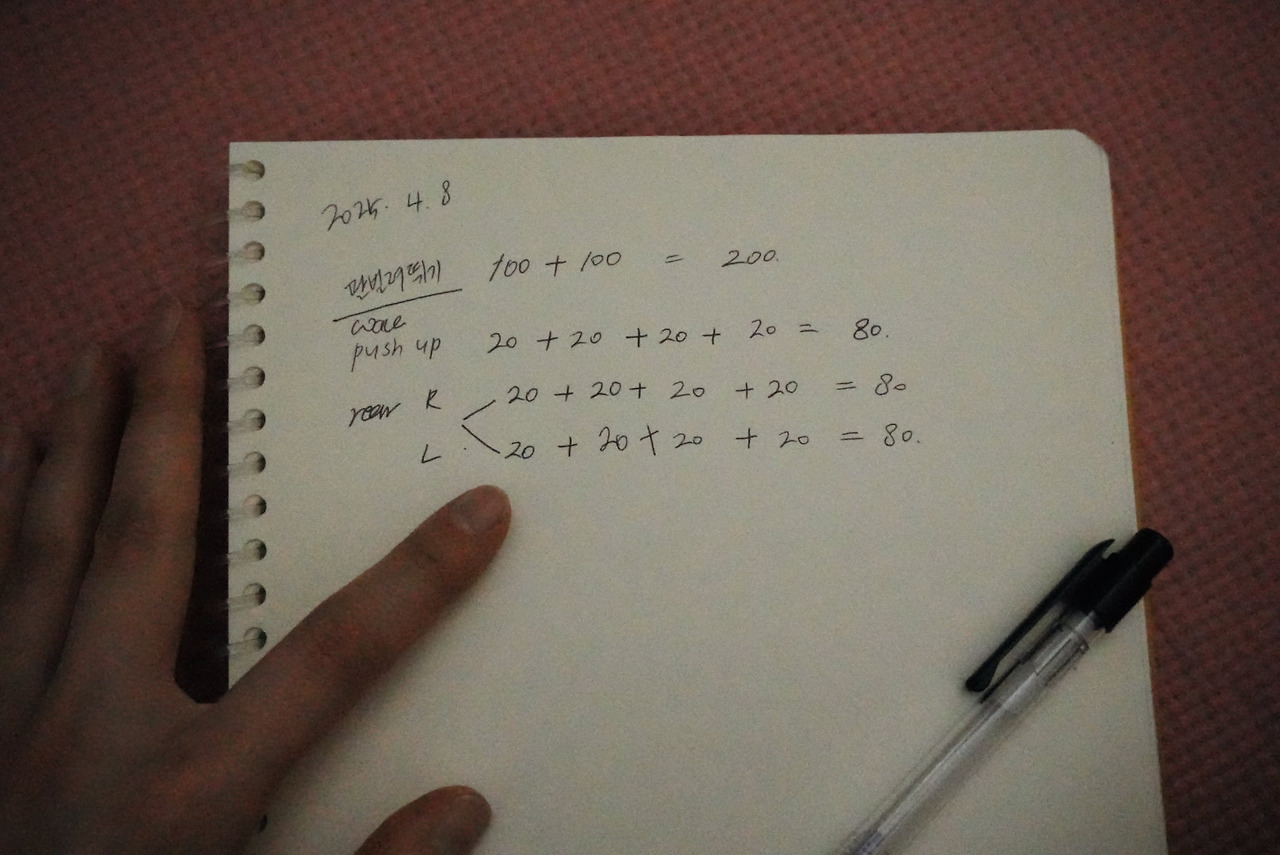 2025. 4. 8
팔벌려뛰기 100 + 100 = 200.
push up 20 + 20 + 20 + 20 = 80.
R 20 + 20 + 20 + 20 = 80
L 20 + 20 + 20 + 20 = 80.